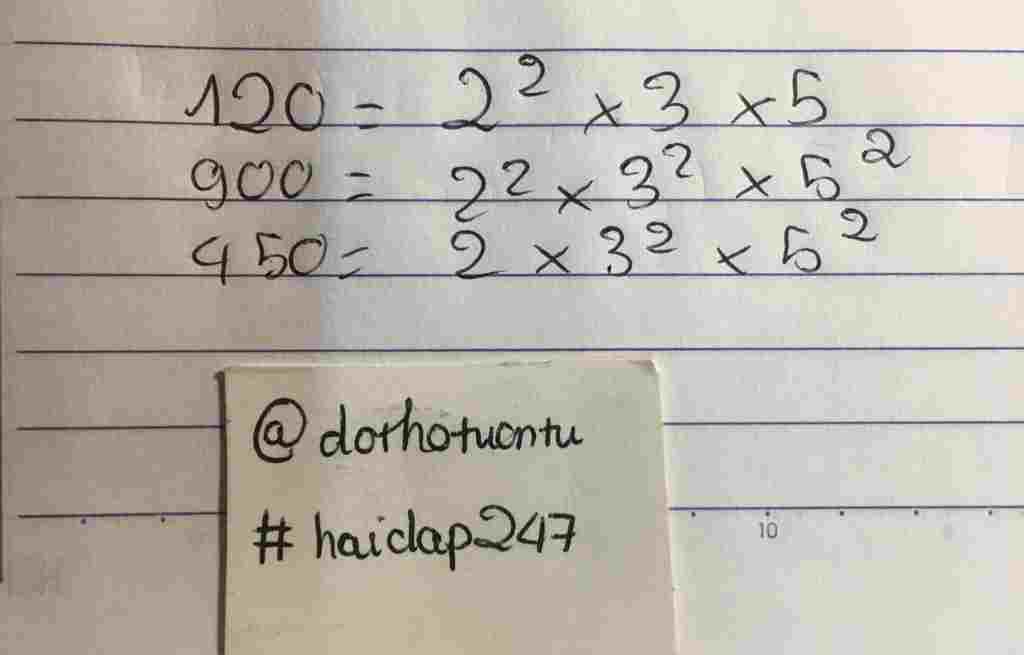 120 = 2² × 3 × 5
900 = 2² × 3² × 5²
450 = 2 × 3² × 5²
@dorhotuontu
#haidap247
10